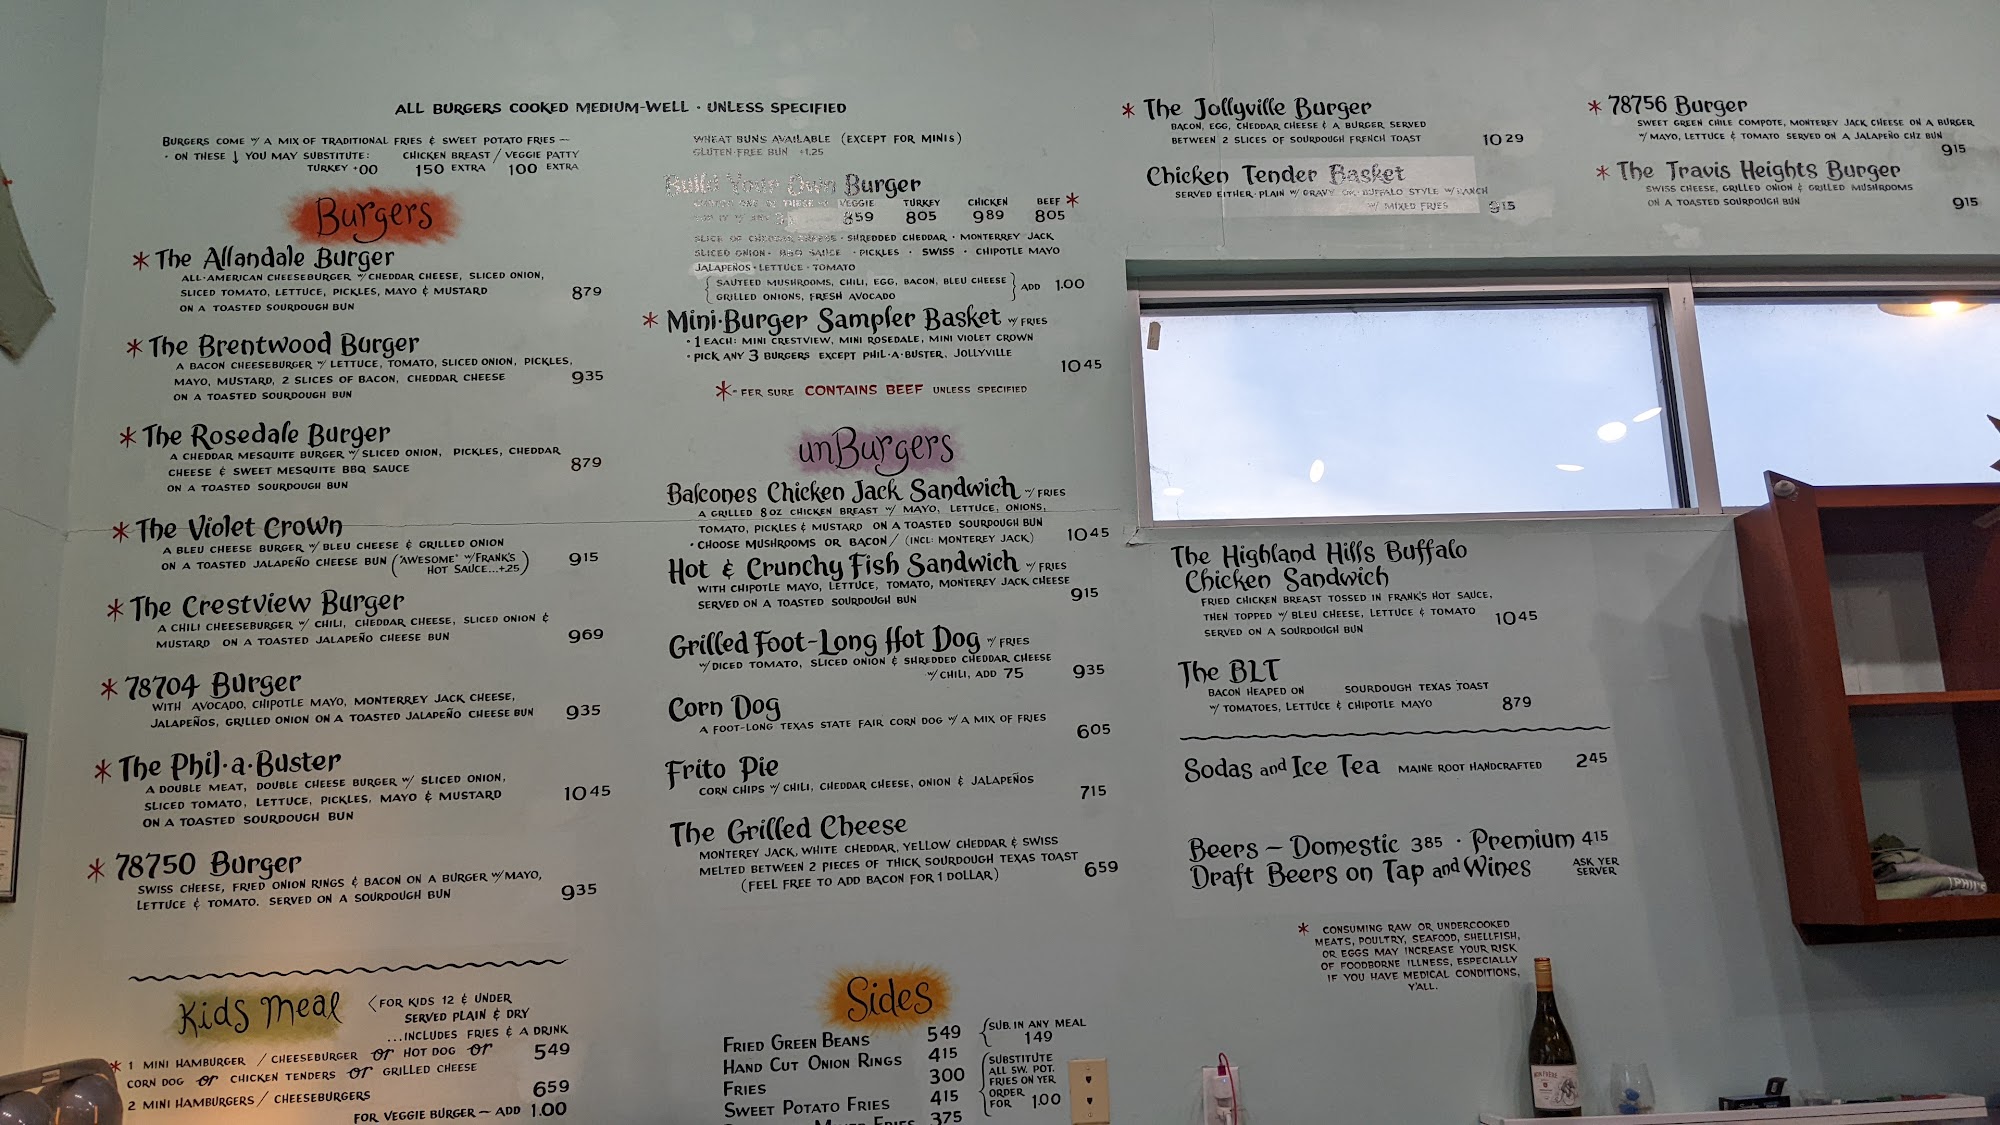 ALL BURGERS COOKED MEDIUM-WELL · UNLESS SPECIFIED
BURGERS COME W/ A MIX OF TRADITIONAL FRIES & SWEET POTATO FRIES —
· ON THESE ↓ YOU MAY SUBSTITUTE: CHICKEN BREAST / VEGGIE PATTY
TURKEY +00 150 EXTRA 100 EXTRA
Burgers
* The Allandale Burger
ALL·AMERICAN CHEESEBURGER W/ CHEDDAR CHEESE, SLICED ONION,
SLICED TOMATO, LETTUCE, PICKLES, MAYO & MUSTARD 879
ON A TOASTED SOURDOUGH BUN
* The Brentwood Burger
A BACON CHEESEBURGER W/ LETTUCE, TOMATO, SLICED ONION, PICKLES,
MAYO, MUSTARD, 2 SLICES OF BACON, CHEDDAR CHEESE 935
ON A TOASTED SOURDOUGH BUN
* The Rosedale Burger
A CHEDDAR MESQUITE BURGER W/ SLICED ONION, PICKLES, CHEDDAR
CHEESE & SWEET MESQUITE BBQ SAUCE 879
ON A TOASTED SOURDOUGH BUN
* The Violet Crown
A BLEU CHEESE BURGER W/ BLEU CHEESE & GRILLED ONION
ON A TOASTED JALAPEÑO CHEESE BUN ("AWESOME" W/ FRANK'S 915
HOT SAUCE...+.25)
* The Crestview Burger
A CHILI CHEESEBURGER W/ CHILI, CHEDDAR CHEESE, SLICED ONION &
MUSTARD ON A TOASTED JALAPEÑO CHEESE BUN 969
* 78704 Burger
WITH AVOCADO, CHIPOTLE MAYO, MONTERREY JACK CHEESE,
JALAPEÑOS, GRILLED ONION ON A TOASTED JALAPEÑO CHEESE BUN 935
* The Phil·a·Buster
A DOUBLE MEAT, DOUBLE CHEESE BURGER W/ SLICED ONION,
SLICED TOMATO, LETTUCE, PICKLES, MAYO & MUSTARD 1045
ON A TOASTED SOURDOUGH BUN
* 78750 Burger
SWISS CHEESE, FRIED ONION RINGS & BACON ON A BURGER W/ MAYO,
LETTUCE & TOMATO. SERVED ON A SOURDOUGH BUN 935
Kids Meal
FOR KIDS 12 & UNDER
SERVED PLAIN & DRY
...INCLUDES FRIES & A DRINK
* 1 MINI HAMBURGER / CHEESEBURGER or HOT DOG or 549
CORN DOG or CHICKEN TENDERS or GRILLED CHEESE
2 MINI HAMBURGERS / CHEESEBURGERS 659
FOR VEGGIE BURGER — ADD 1.00
WHEAT BUNS AVAILABLE (EXCEPT FOR MINIS)
GLUTEN-FREE BUN +1.25
Build Your Own Burger
VEGGIE TURKEY CHICKEN BEEF *
859 805 989 805
SLICE OF CHEDDAR CHEESE · SHREDDED CHEDDAR · MONTERREY JACK
SLICED ONION · BBQ SAUCE · PICKLES · SWISS · CHIPOTLE MAYO
JALAPEÑOS · LETTUCE · TOMATO
{ SAUTEED MUSHROOMS, CHILI, EGG, BACON, BLEU CHEESE } ADD 1.00
GRILLED ONIONS, FRESH AVOCADO
* Mini·Burger Sampler Basket W/ FRIES
· 1 EACH: MINI CRESTVIEW, MINI ROSEDALE, MINI VIOLET CROWN
· PICK ANY 3 BURGERS EXCEPT PHIL·A·BUSTER, JOLLYVILLE
1045
* - FER SURE CONTAINS BEEF UNLESS SPECIFIED
unBurgers
Balcones Chicken Jack Sandwich W/ FRIES
A GRILLED 8 OZ CHICKEN BREAST W/ MAYO, LETTUCE, ONIONS,
TOMATO, PICKLES & MUSTARD ON A TOASTED SOURDOUGH BUN
· CHOOSE MUSHROOMS OR BACON / (INCL: MONTEREY JACK) 1045
Hot & Crunchy Fish Sandwich W/ FRIES
WITH CHIPOTLE MAYO, LETTUCE, TOMATO, MONTEREY JACK CHEESE
SERVED ON A TOASTED SOURDOUGH BUN 915
Grilled Foot-Long Hot Dog W/ FRIES
W/ DICED TOMATO, SLICED ONION & SHREDDED CHEDDAR CHEESE
W/ CHILI, ADD 75 935
Corn Dog
A FOOT-LONG TEXAS STATE FAIR CORN DOG W/ A MIX OF FRIES
605
Frito Pie
CORN CHIPS W/ CHILI, CHEDDAR CHEESE, ONION & JALAPEÑOS
715
The Grilled Cheese
MONTEREY JACK, WHITE CHEDDAR, YELLOW CHEDDAR & SWISS
MELTED BETWEEN 2 PIECES OF THICK SOURDOUGH TEXAS TOAST 659
(FEEL FREE TO ADD BACON FOR 1 DOLLAR)
Sides
FRIED GREEN BEANS 549 { SUB. IN ANY MEAL
149
HAND CUT ONION RINGS 415
FRIES 300
SWEET POTATO FRIES 415
375
{ SUBSTITUTE
ALL SW. POT.
FRIES ON YER
ORDER
FOR 1.00
* The Jollyville Burger
BACON, EGG, CHEDDAR CHEESE & A BURGER SERVED
BETWEEN 2 SLICES OF SOURDOUGH FRENCH TOAST 1029
Chicken Tender Basket
SERVED EITHER · PLAIN W/ GRAVY OR · BUFFALO STYLE W/ RANCH
W/ MIXED FRIES 915
* 78756 Burger
SWEET GREEN CHILE COMPOTE, MONTEREY JACK CHEESE ON A BURGER
W/ MAYO, LETTUCE & TOMATO SERVED ON A JALAPEÑO CHZ BUN
915
* The Travis Heights Burger
SWISS CHEESE, GRILLED ONION & GRILLED MUSHROOMS
ON A TOASTED SOURDOUGH BUN 915
The Highland Hills Buffalo
Chicken Sandwich
FRIED CHICKEN BREAST TOSSED IN FRANK'S HOT SAUCE,
THEN TOPPED W/ BLEU CHEESE, LETTUCE & TOMATO 1045
SERVED ON A SOURDOUGH BUN
The BLT
BACON HEAPED ON SOURDOUGH TEXAS TOAST
W/ TOMATOES, LETTUCE & CHIPOTLE MAYO 879
Sodas and Ice Tea MAINE ROOT HANDCRAFTED 245
Beers — Domestic 385 · Premium 415
Draft Beers on Tap and Wines ASK YER
SERVER
* CONSUMING RAW OR UNDERCOOKED
MEATS, POULTRY, SEAFOOD, SHELLFISH,
OR EGGS MAY INCREASE YOUR RISK
OF FOODBORNE ILLNESS, ESPECIALLY
IF YOU HAVE MEDICAL CONDITIONS,
Y'ALL.